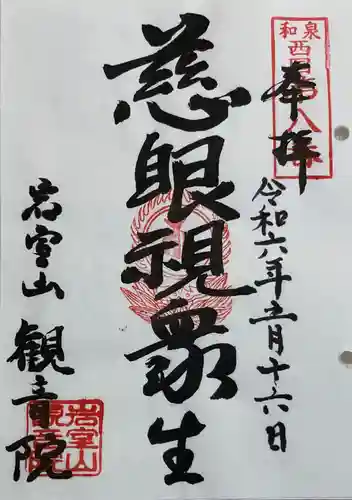 和泉
西国八十八
奉拝
令和六年五月十六日
慈眼視衆生
岩室山
観音院
岩室山
観音院